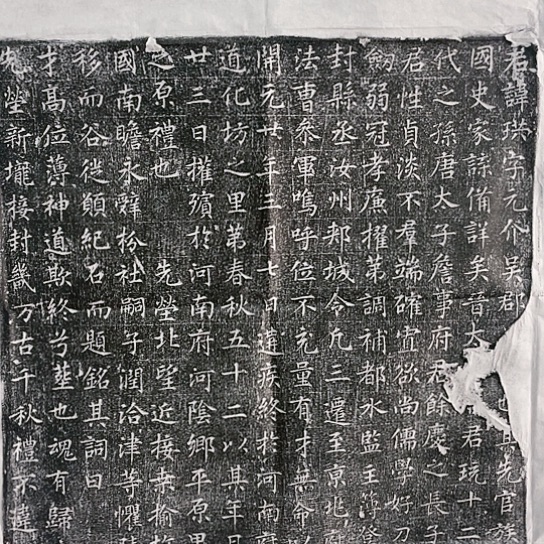 君諱珙字元介吳郡也其先官族
國史家諜備詳矣晉太君玩十二
代之孫唐太子詹事府君餘慶之長子
君性貞淡不羣端確寬欲尚儒學好刀
劒弱冠孝廉擢第調補都水監主簿
封縣丞汝州郟城令凡三遷至京兆
法曹叅軍嗚呼位不充量有才無命以
開元廿年三月七日遘疾終於河南府
道化坊之里第春秋五十二以其年
廿三日權殯於河南府河陰鄉平原里
之原禮也 先塋北望近接桒榆
國南瞻永辭枌社嗣子潤洽津等懼
移而谷徙願紀石而題銘其詞曰
才高位薄神道欺終兮塟也魂有歸
先塋新壠接封畿万古千秋禮不違